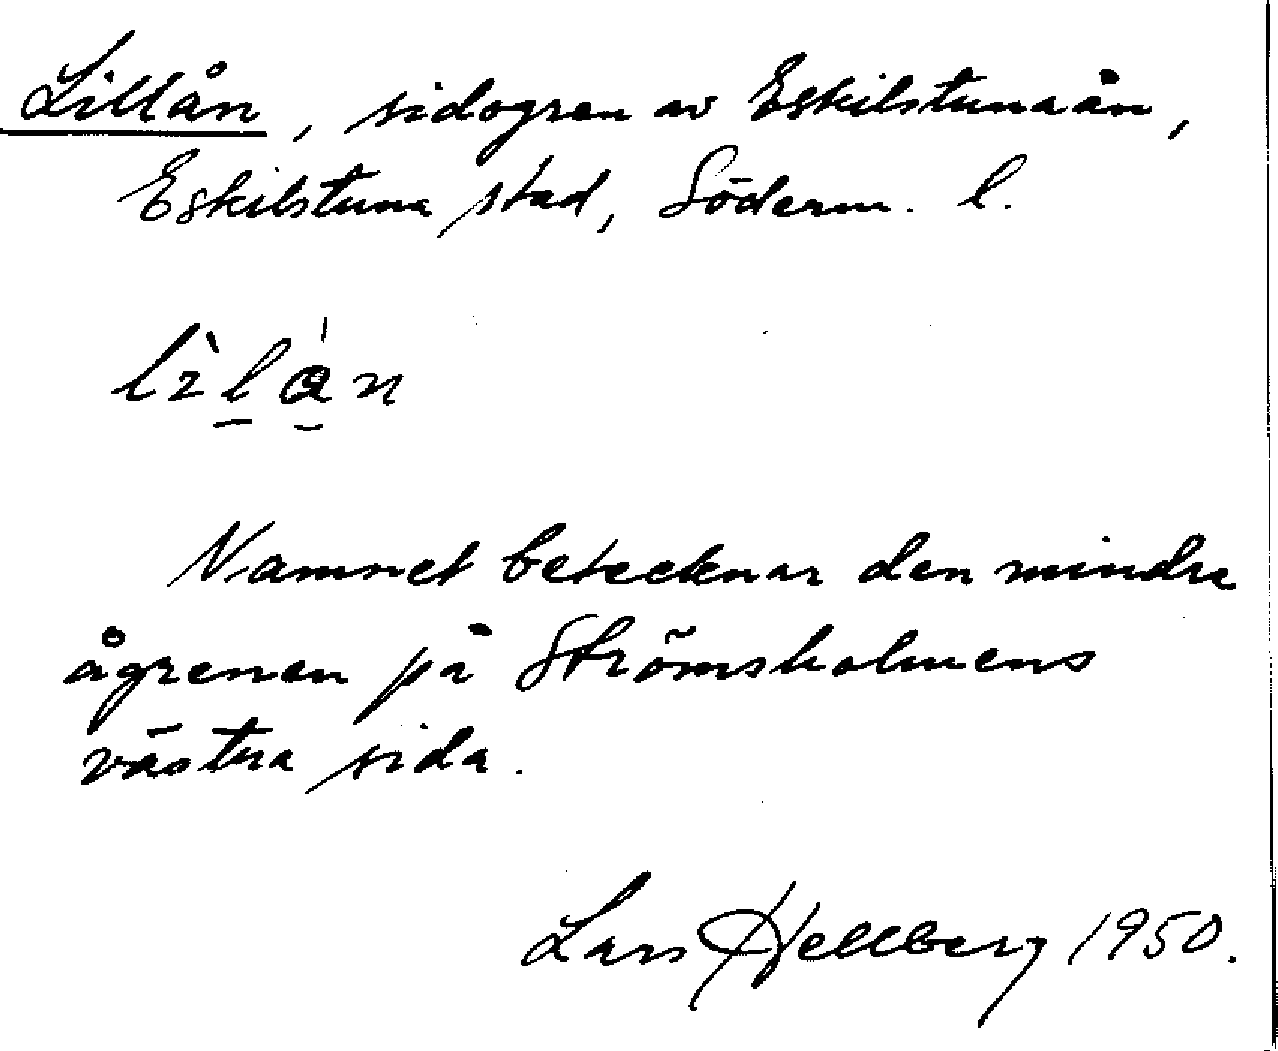 Lillån, sidogren av Eskilstunaån,
Eskilstuna stad, Söderm. l.
Namnet betecknar den mindre
ågrenen på Strömsholmens
västra sida.
Lars Hellberg 1950.